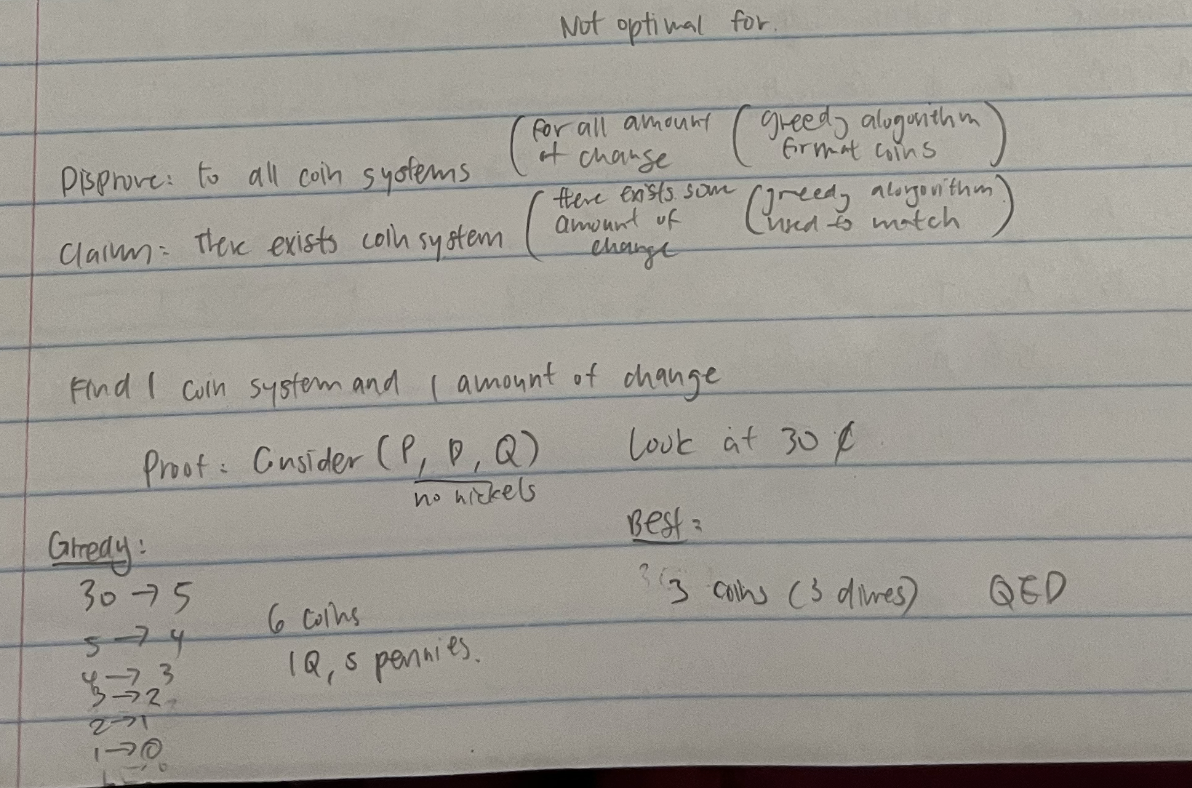 Not optimal for.
Disprove: to all coin systems (for all amount of change (greedy alogorithm format coins)
Claium: there exists coin system (there exists some amount of change (greedy alorgorithm used to match)
Find 1 coin system and 1 amount of change
Proof: Cnsider (P, D, Q) Look at 30 ¢
no nickels
Greedy:
Best:
30 → 5
3 coins (3 dimes) QED
6 coins
5 → 4
1Q, 5 pennies.
4 → 3
3 → 2
2 → 1
1 → 0